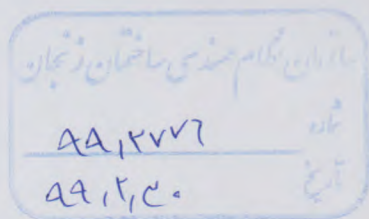 سازمان نظام مهندسی ساختمان زنجان
شماره ۹۹,۲۷۷۶
تاریخ ۹۹,۲,۳۰